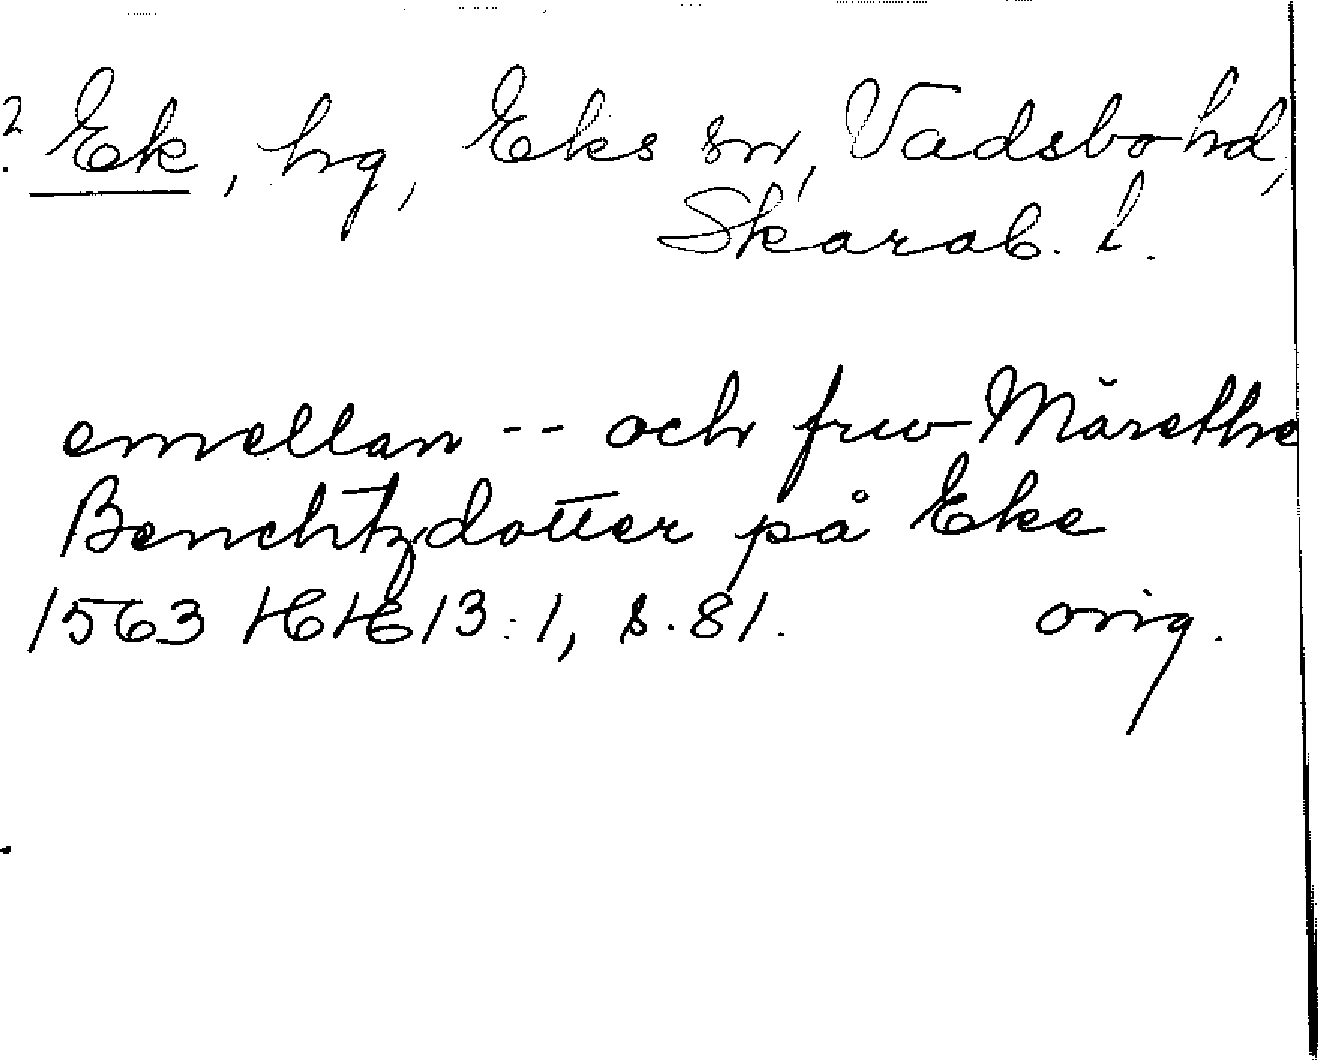 ? Ek, hg, Eks sn, Vadsbo hd,
Skarab. l.
emellan -- och frw Märethe
Benchtzdotter på Eke
1563 HH 13:1, s. 81. orig.